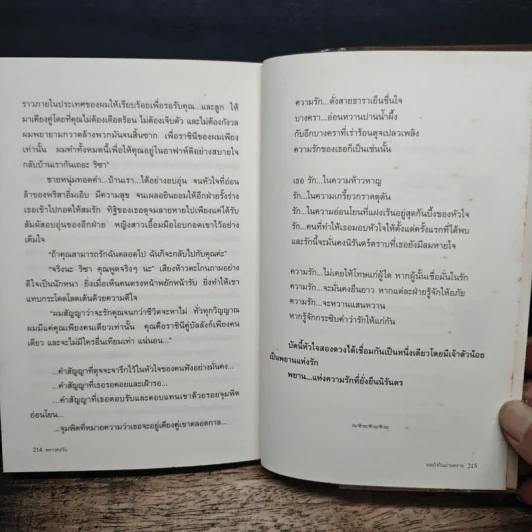 ราวภายในประเทศของผมให้เรียบร้อยเพื่อรอรับคุณ...และลูก ให้
มาเคียงคู่โดยที่คุณไม่ต้องเดือดร้อน ไม่ต้องเจ็บตัว และไม่ต้องกังวล
ผมพยายามกวาดล้างพวกมันจนสิ้นซาก เพื่อราชินีของผมเพียง
เท่านั้น ผมทำทั้งหมดนี้เพื่อให้คุณอยู่ในอาฟาห์ดีอย่างสบายใจ
กลับบ้านเรากันเถอะ ริซา"
ชายหนุ่มทอดคำ...บ้านเรา...ได้อย่างอบอุ่น จนหัวใจที่อ่อน
ล้าของพริสาอิ่มเอิบ มีความสุข จนเผลอยินยอมให้อีกฝ่ายรั้งร่าง
เธอเข้าไปกอดให้สมรัก ทิฐิของเธอดุจมลายหายไปเพียงแค่ได้รับ
สัมผัสอบอุ่นของอีกฝ่าย หญิงสาวเอื้อมมือโอบกอดเขาไว้อย่าง
เต็มใจ
"ถ้าคุณสามารถรักฉันตลอดไป ฉันก็จะกลับไปกับคุณค่ะ"
"จริงนะ ริซา คุณพูดจริงๆ นะ" เสียงห้าวตะโกนถามอย่าง
ดีใจเป็นนักหนา ยิ่งเมื่อเห็นคนตรงหน้าพยักหน้ารับ ยิ่งทำให้เขา
แทบกระโดดโลดเต้นด้วยความดีใจ
"ผมสัญญาว่าจะรักคุณจนกว่าชีวิตจะหาไม่ ทั่วทุกวิญญาณ
ผมมีแค่คุณเพียงคนเดียวเท่านั้น คุณคือราชินีคู่บัลลังก์เพียงคน
เดียว และจะไม่มีใครอื่นเทียมเท่า แน่นอน..."
...คำสัญญาที่ดุจจะจารึกไว้ในหัวใจของคนฟังอย่างมั่นคง...
...คำสัญญาที่เธอรอคอยและเฝ้ารอ...
...คำสัญญาที่เธอตอบรับและตอบแทนเขาด้วยรอยจุมพิต
อ่อนโยน...
...จุมพิตที่หมายความว่าเธอจะอยู่เคียงคู่เขาตลอดกาล...
214
ความรัก...ดั่งสายธาราเย็นชื่นใจ
บางครา...อ่อนหวานปานน้ำผึ้ง
กับอีกบางคราที่เร่าร้อนดุจเปลวเพลิง
ความรักของเธอก็เป็นเช่นนั้น
เธอ รัก...ในความห้าวหาญ
รัก...ในความเกรี้ยวกราดดุดัน
รัก...ในความอ่อนโยนที่แฝงเร้นอยู่สุดก้นบึ้งของหัวใจ
รัก...คนที่ทำให้เธอมอบหัวใจให้ตั้งแต่ครั้งแรกที่ได้พบ
และรักนี้จะมั่นคงนิรันดร์ตราบที่เธอยังมีลมหายใจ
ความรัก...ไม่เคยให้โทษแก่ผู้ใด หากผู้นั้นเชื่อมั่นในรัก
ความรัก...จะมั่นคงยืนยาว หากแต่ละฝ่ายรู้จักให้อภัย
ความรัก...จะหวานแสนหวาน
หากรู้จักกระซิบคำว่ารักให้แก่กัน
บัดนี้หัวใจสองดวงได้เชื่อมกันเป็นหนึ่งเดียวโดยมีเจ้าตัวน้อย
เป็นพยานแห่งรัก
พยาน...แห่งความรักที่ยั่งยืนนิรันดร
215